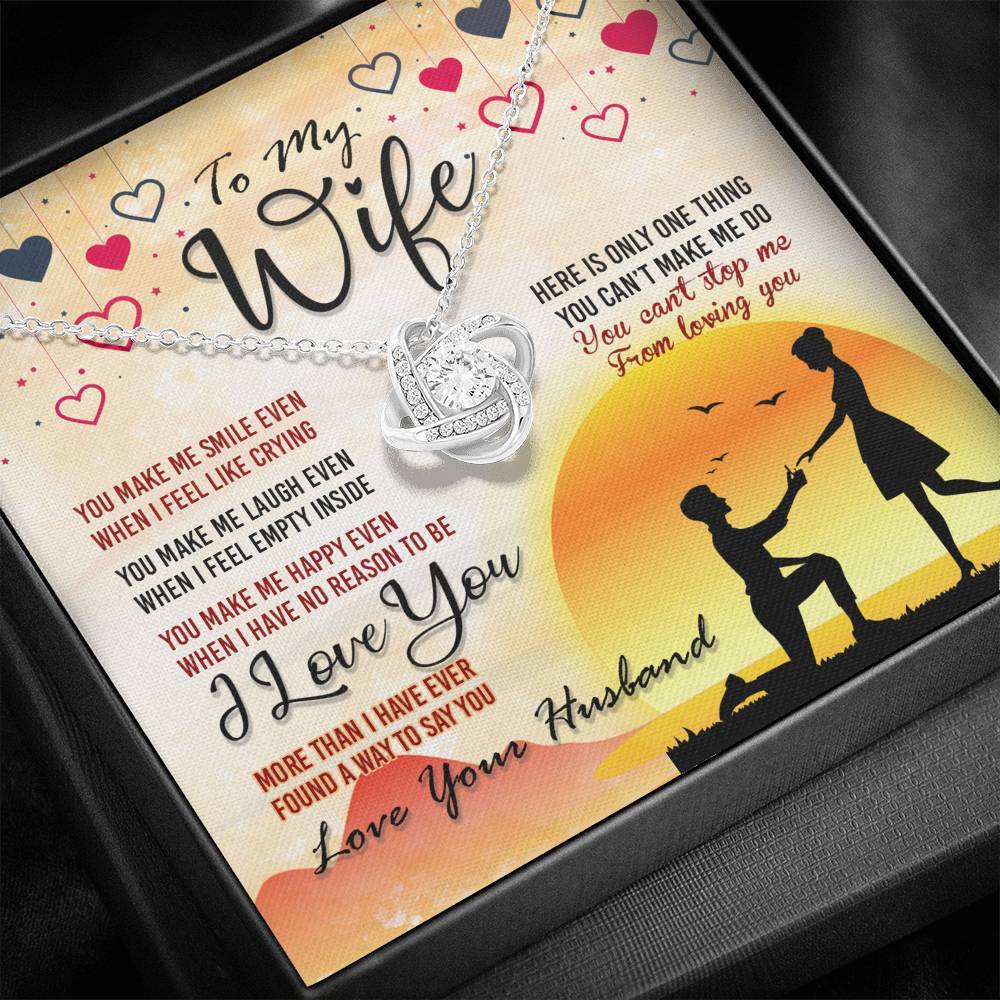 To My
Wife
HERE IS ONLY ONE THING
YOU CAN'T MAKE ME DO
You can't stop me
From loving you
YOU MAKE ME SMILE EVEN
WHEN I FEEL LIKE CRYING
YOU MAKE ME LAUGH EVEN
WHEN I FEEL EMPTY INSIDE
YOU MAKE ME HAPPY EVEN
WHEN I HAVE NO REASON TO BE
I Love You
MORE THAN I HAVE EVER
FOUND A WAY TO SAY YOU
Love Your Husband